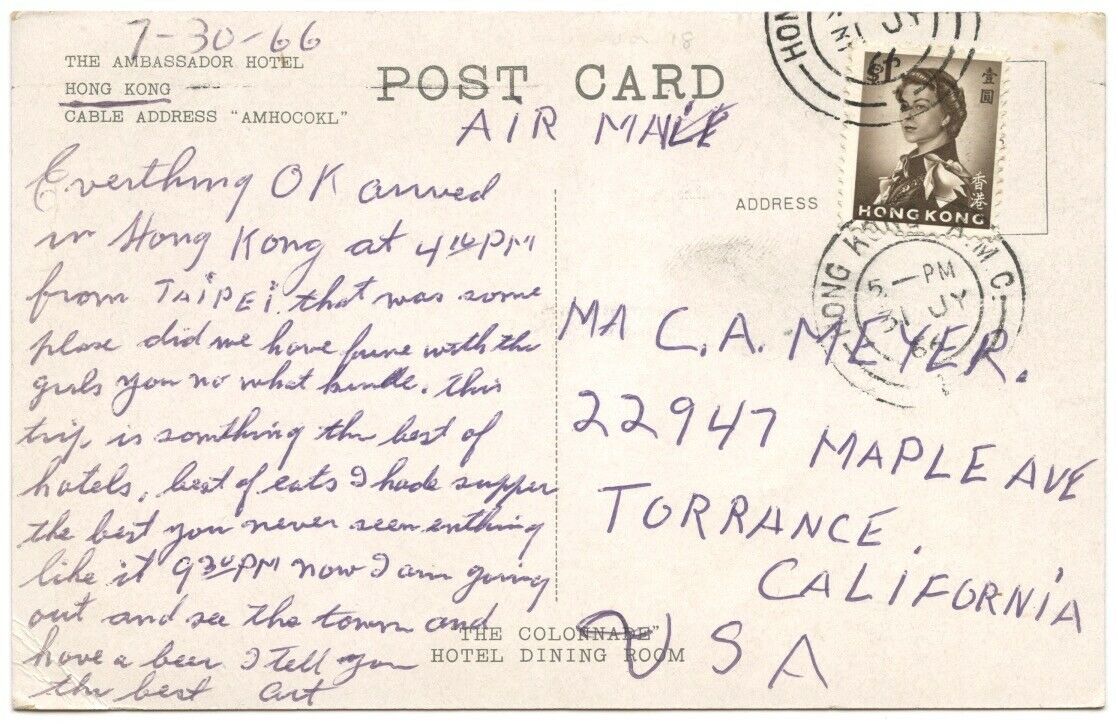 7-30-66
THE AMBASSADOR HOTEL
HONG KONG
CABLE ADDRESS "AMHOCOKL"
POST CARD
AIR MAIL
Everthing OK arrived
in Hong Kong at 4 PM
from TAIPEI. that was some
plase did we have fune with the
girls you no what
this
trip is somthing the best of
hotels, best of eats I hade supper
the best you never seen enthing
like it 9 30 PM now I am going
out and see the town and
have a beer I tell you
the best Art
"THE COLONNADE"
HOTEL DINING ROOM
ADDRESS
壹圓
香港
HONG KONG
HONG KONG
5 — PM
31 JY
66
31 JY
C.A. MEYER.
22947
MAPLE AVE
TORRANCE,
CALIFORNIA
USA